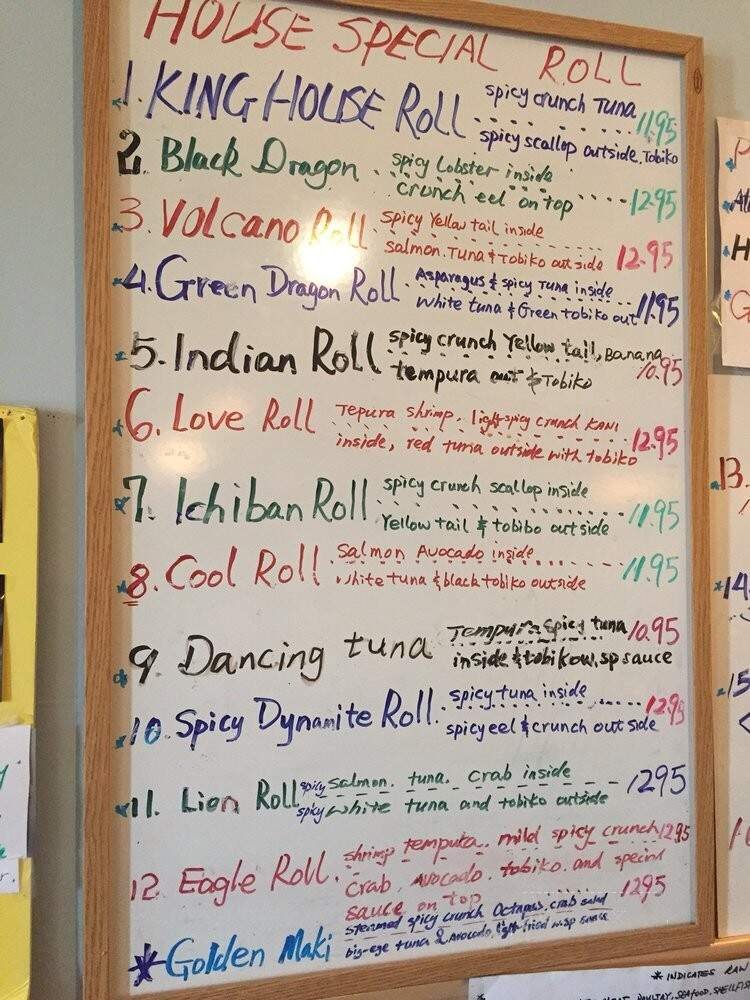 HOUSE SPECIAL ROLL
1. KING HOUSE Roll spicy crunch Tuna 11.95
spicy scallop outside, Tobiko
2. Black Dragon spicy Lobster inside
crunch eel on top 12.95
3. Volcano Roll spicy Yellow tail inside
salmon. Tuna & Tobiko outside 12.95
4. Green Dragon Roll Asparagus & spicy Tuna inside
white tuna & Green tobiko out 11.95
5. Indian Roll spicy crunch Yellow tail, Banana
tempura out & Tobiko 10.95
6. Love Roll Tepura shrimp. light spicy crunch KANI
inside, red tuna outside with tobiko 12.95
7. Ichiban Roll spicy crunch scallop inside
Yellow tail & tobibo outside 11.95
8. Cool Roll Salmon Avocado inside
white tuna & black tobiko outside 11.95
9. Dancing tuna Tempura spicy tuna 10.95
inside & tobiko w. sp sauce
10. Spicy Dynamite Roll spicy tuna inside
spicy eel & crunch outside 12.95
11. Lion Roll spicy salmon. tuna. crab inside 1295
spicy white tuna and tobiko outside
12. Eagle Roll. shrimp temputa.. mild spicy crunch 1295
crab. Avocado. tobiko. and special
sauce on top 1295
* Golden Maki steamed spicy crunch Octapus. crab salad
big-eye tuna & Avocado, light fried w. sp sauce
13.
*14.
15
* INDICATES RAW
SEAFOOD, SHELLFIS